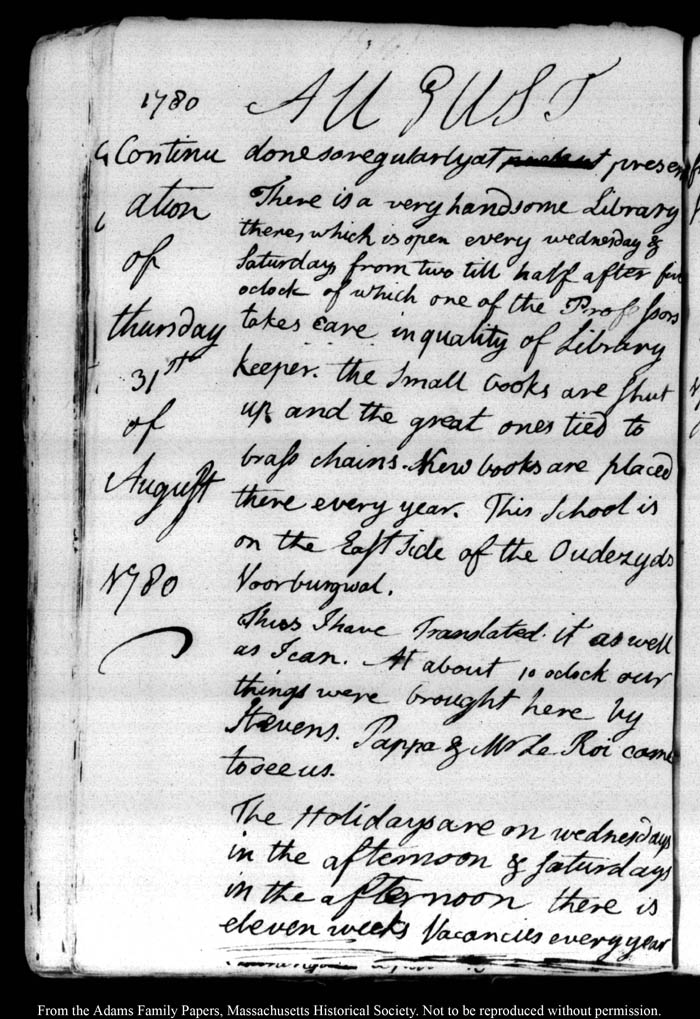 1780 AUGUST
Continu
ation
of
thursday
31st
of
August
1780
done so regularly at presen
There is a very handsome Library
there, which is open every wednesday &
Saturday from two till half after five
oclock of which one of the Professors
takes care in quality of Library
keeper. the Small books are shut
up and the great ones tied to
brass chains. New books are placed
there every year. This School is
on the East Side of the Oudezyds
Voorburgwal.
Thus I have Translated it as well
as I can. At about 10 oclock our
things were brought here by
Stevens. Pappa & Mr Le Roi came
to see us.
The Holidays are on wednesdays
in the afternoon & Saturdays
in the afternoon there is
eleven weeks Vacancies every year
From the Adams Family Papers, Massachusetts Historical Society. Not to be reproduced without permission.